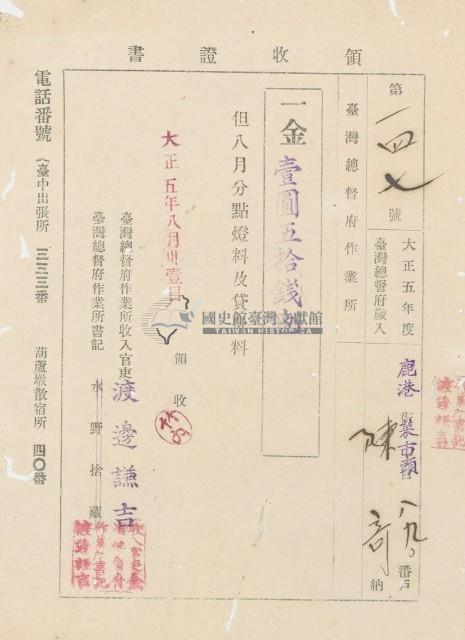 領收證書
第一四七號
大正五年度
臺灣總督府歲入
臺灣總督府作業所
鹿港街菜市頭
八九〇番戶
陳奇納
一金壹圓五拾錢也
但八月分點燈料及貸付料
領收
大正五年八月卅壹日
臺灣總督府作業所收入官吏
臺灣總督府作業所書記
渡邊謙吉
水野捨藏
電話番號
臺中出張所 一三三三番
葫蘆墩散宿所 四〇番
國史館臺灣文獻館
TAIWAN HISTORICA